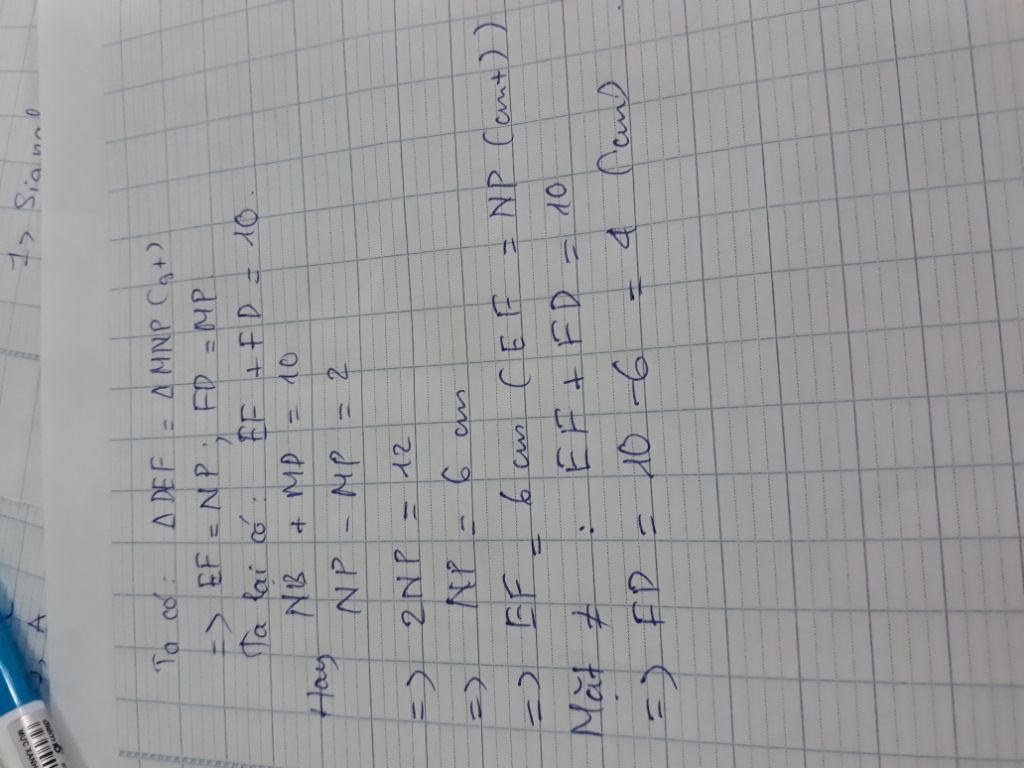 Ta có: ΔDEF = ΔMNP (gt)
=> EF = NP; FD = MP
Ta lại có: EF + FD = 10.
Hay NP + MP = 10
NP - MP = 2
=> 2NP = 12
=> NP = 6 cm
=> EF = 6 cm (EF = NP (cmt))
Mặt ≠ : EF + FD = 10
=> FD = 10 - 6 = 4 (cm)